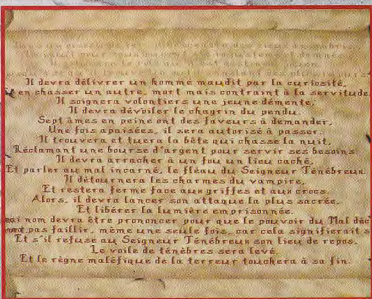 Il devra délivrer un homme maudit par la curiosité,
en chasser un autre, mort mais contraint à la servitude.
Il soignera volontiers une jeune démente,
Il devra dévoiler le chagrin du pendu.
Sept âmes en peine ont des faveurs à demander,
Une fois apaisées, il sera autorisé à passer.
Il trouvera et tuera la bête qui chasse la nuit,
Réclamant une bourse d'argent pour servir ses besoins
Il devra arracher à un fou un lieu caché,
Et parler au mal incarné, le fléau du Seigneur Ténébreux
Il détournera les charmes du vampire,
Et restera ferme face aux griffes et aux crocs.
Alors, il devra lancer son attaque la plus sacrée,
Et libérer la lumière emprisonnée.
nom devra être prononcer pour que le pouvoir du Mal
pas faillir, même une seule fois, car cela signifierait
Et s'il refuse au Seigneur Ténébreux son lieu de repos,
Le voile de ténèbres sera levé,
Et le règne maléfique de la terreur touchera à sa fin.